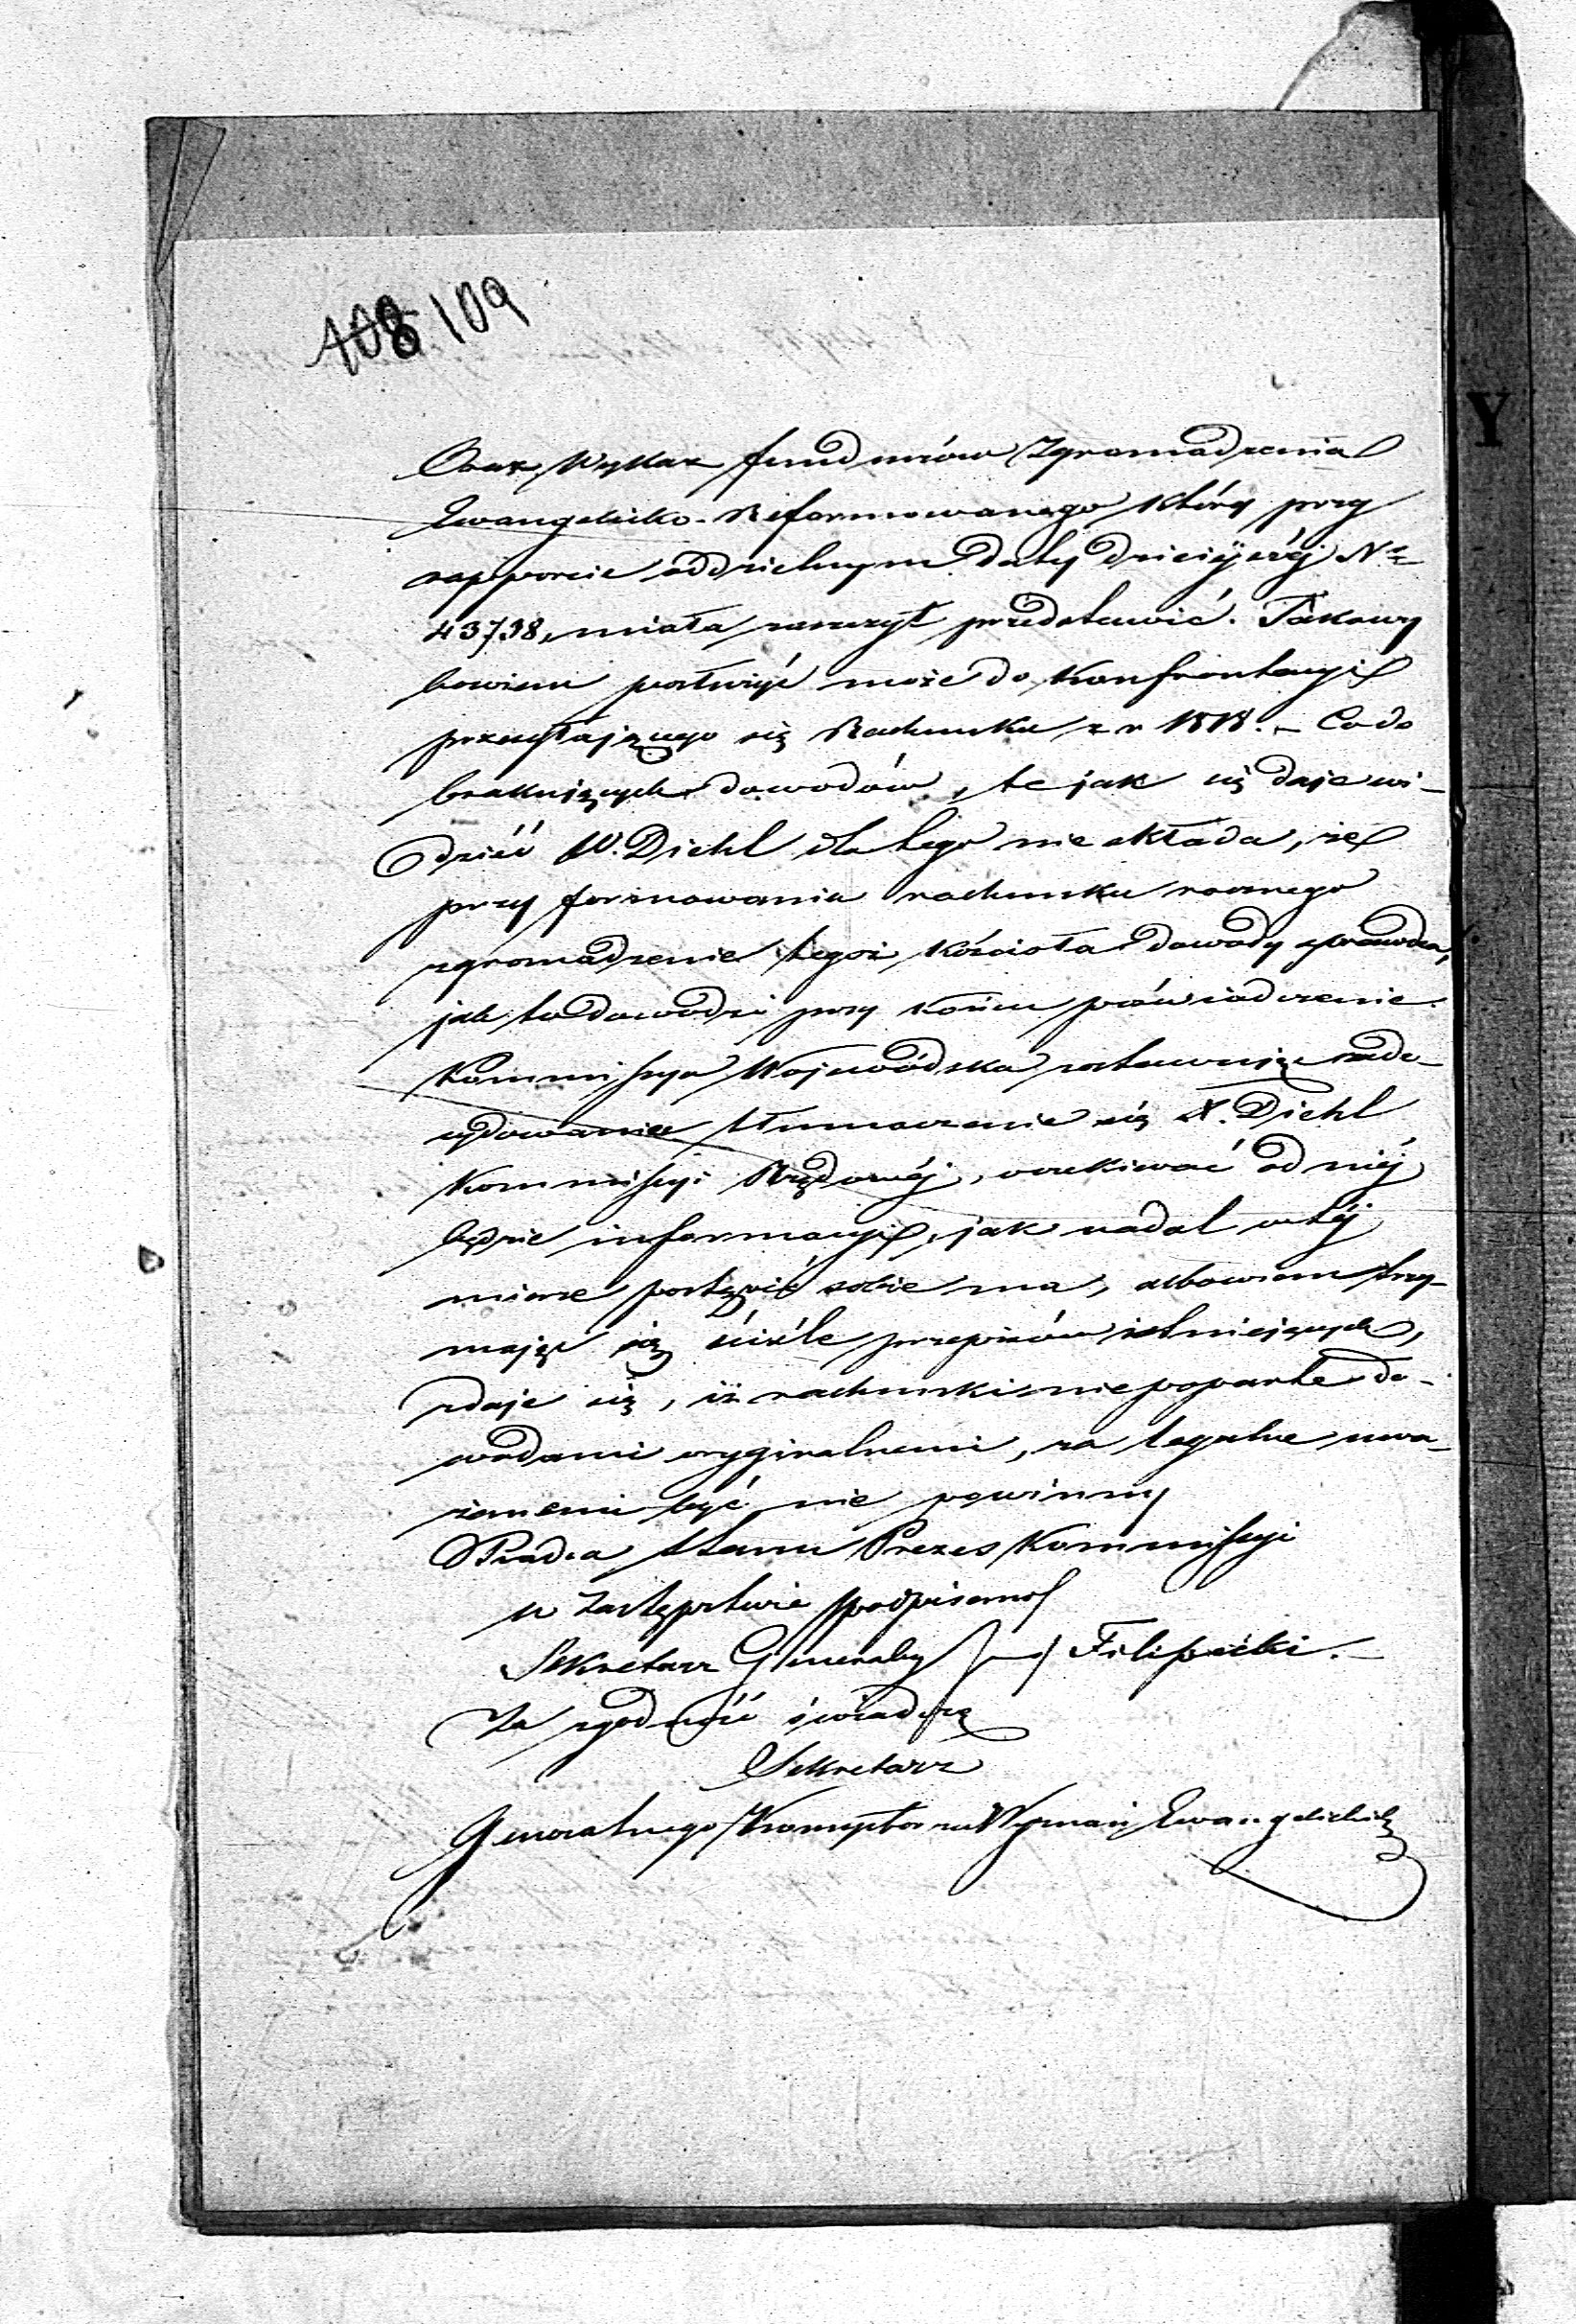 108 109
Oraz Wykaz funduszów Zgromadzenia
Ewangelicko-Reformowanego który przy
rapporcie oddzielnym daty dzisiéjszéj Nro
43738, miała zaszczyt przedstawić. Takowy
bowiem posłużyć może do konfrontacyi
przesyłającego się Rachunku z r 1818. – Co do
brakujących dowodów, te jak się daje wi-
dzieć W. Diehl dla tego nie składa, że
przy formowaniu rachunku rocznego
zgromadzenie tegoż Kościoła dowody sprawdza,
jak to dowodzi przy końcu poświadczenie.
Kommissya Wojewódzka zostawując zade-
cydowanie tłumaczenie się X. Diehl
Kommissyi Rządowéj, oczekiwać od niéj
będzie informacyi, jak nadal w téj
mierze postąpić sobie ma, albowiem trzy-
mając się ściśle przepisów istniejących,
zdaje się, iż rachunki nie poparte do-
wodami oryginalnemi, za legalne uwa-
żanemi być nie powinny
Radca Stanu Prezes Kommissyi
w Zastępstwie podpisano
Sekretarz Generalny Filipecki. –
Za zgodność świadczę
Sekretarz
Generalnego Konsystorza Wyznań Ewangelickich
Y